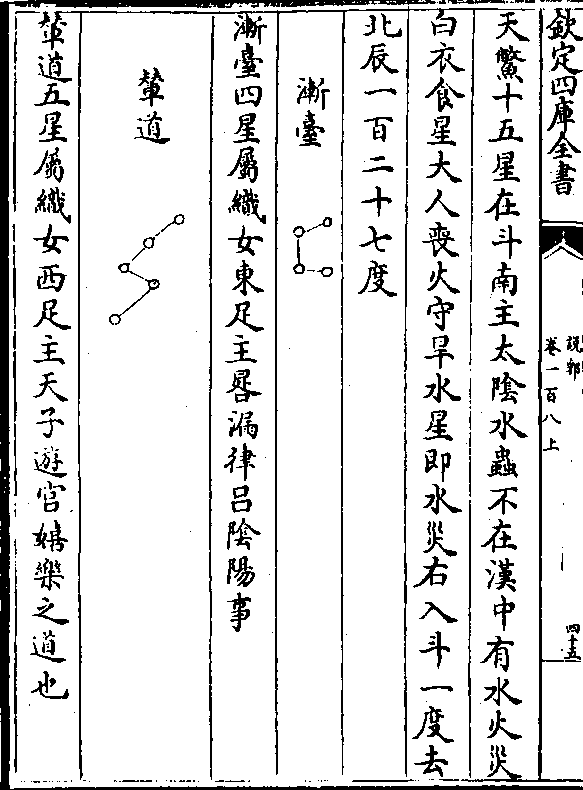 欽定四庫全書
說郛
卷一百八上
四十五
天鱉十五星在斗南主太陰水蟲不在漢中有水火災
白衣食星大人喪火守旱水星即水災右入斗一度去
北辰一百二十七度
漸臺
漸臺四星屬織女東足主晷漏律呂陰陽事
輦道
輦道五星屬織女西足主天子遊宮嬉樂之道也